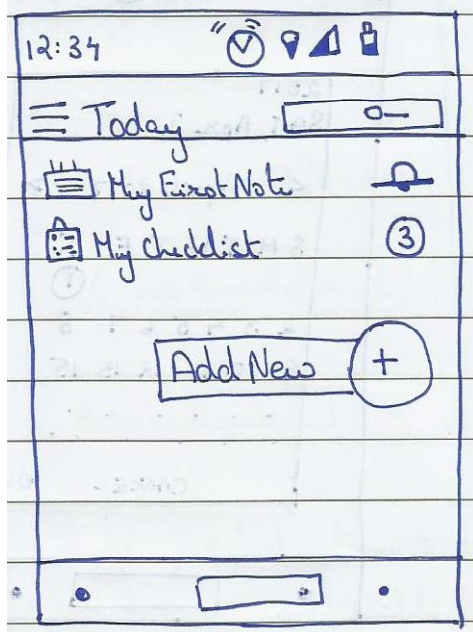 12:34
Today
My First Note
My checklist 3
Add New +